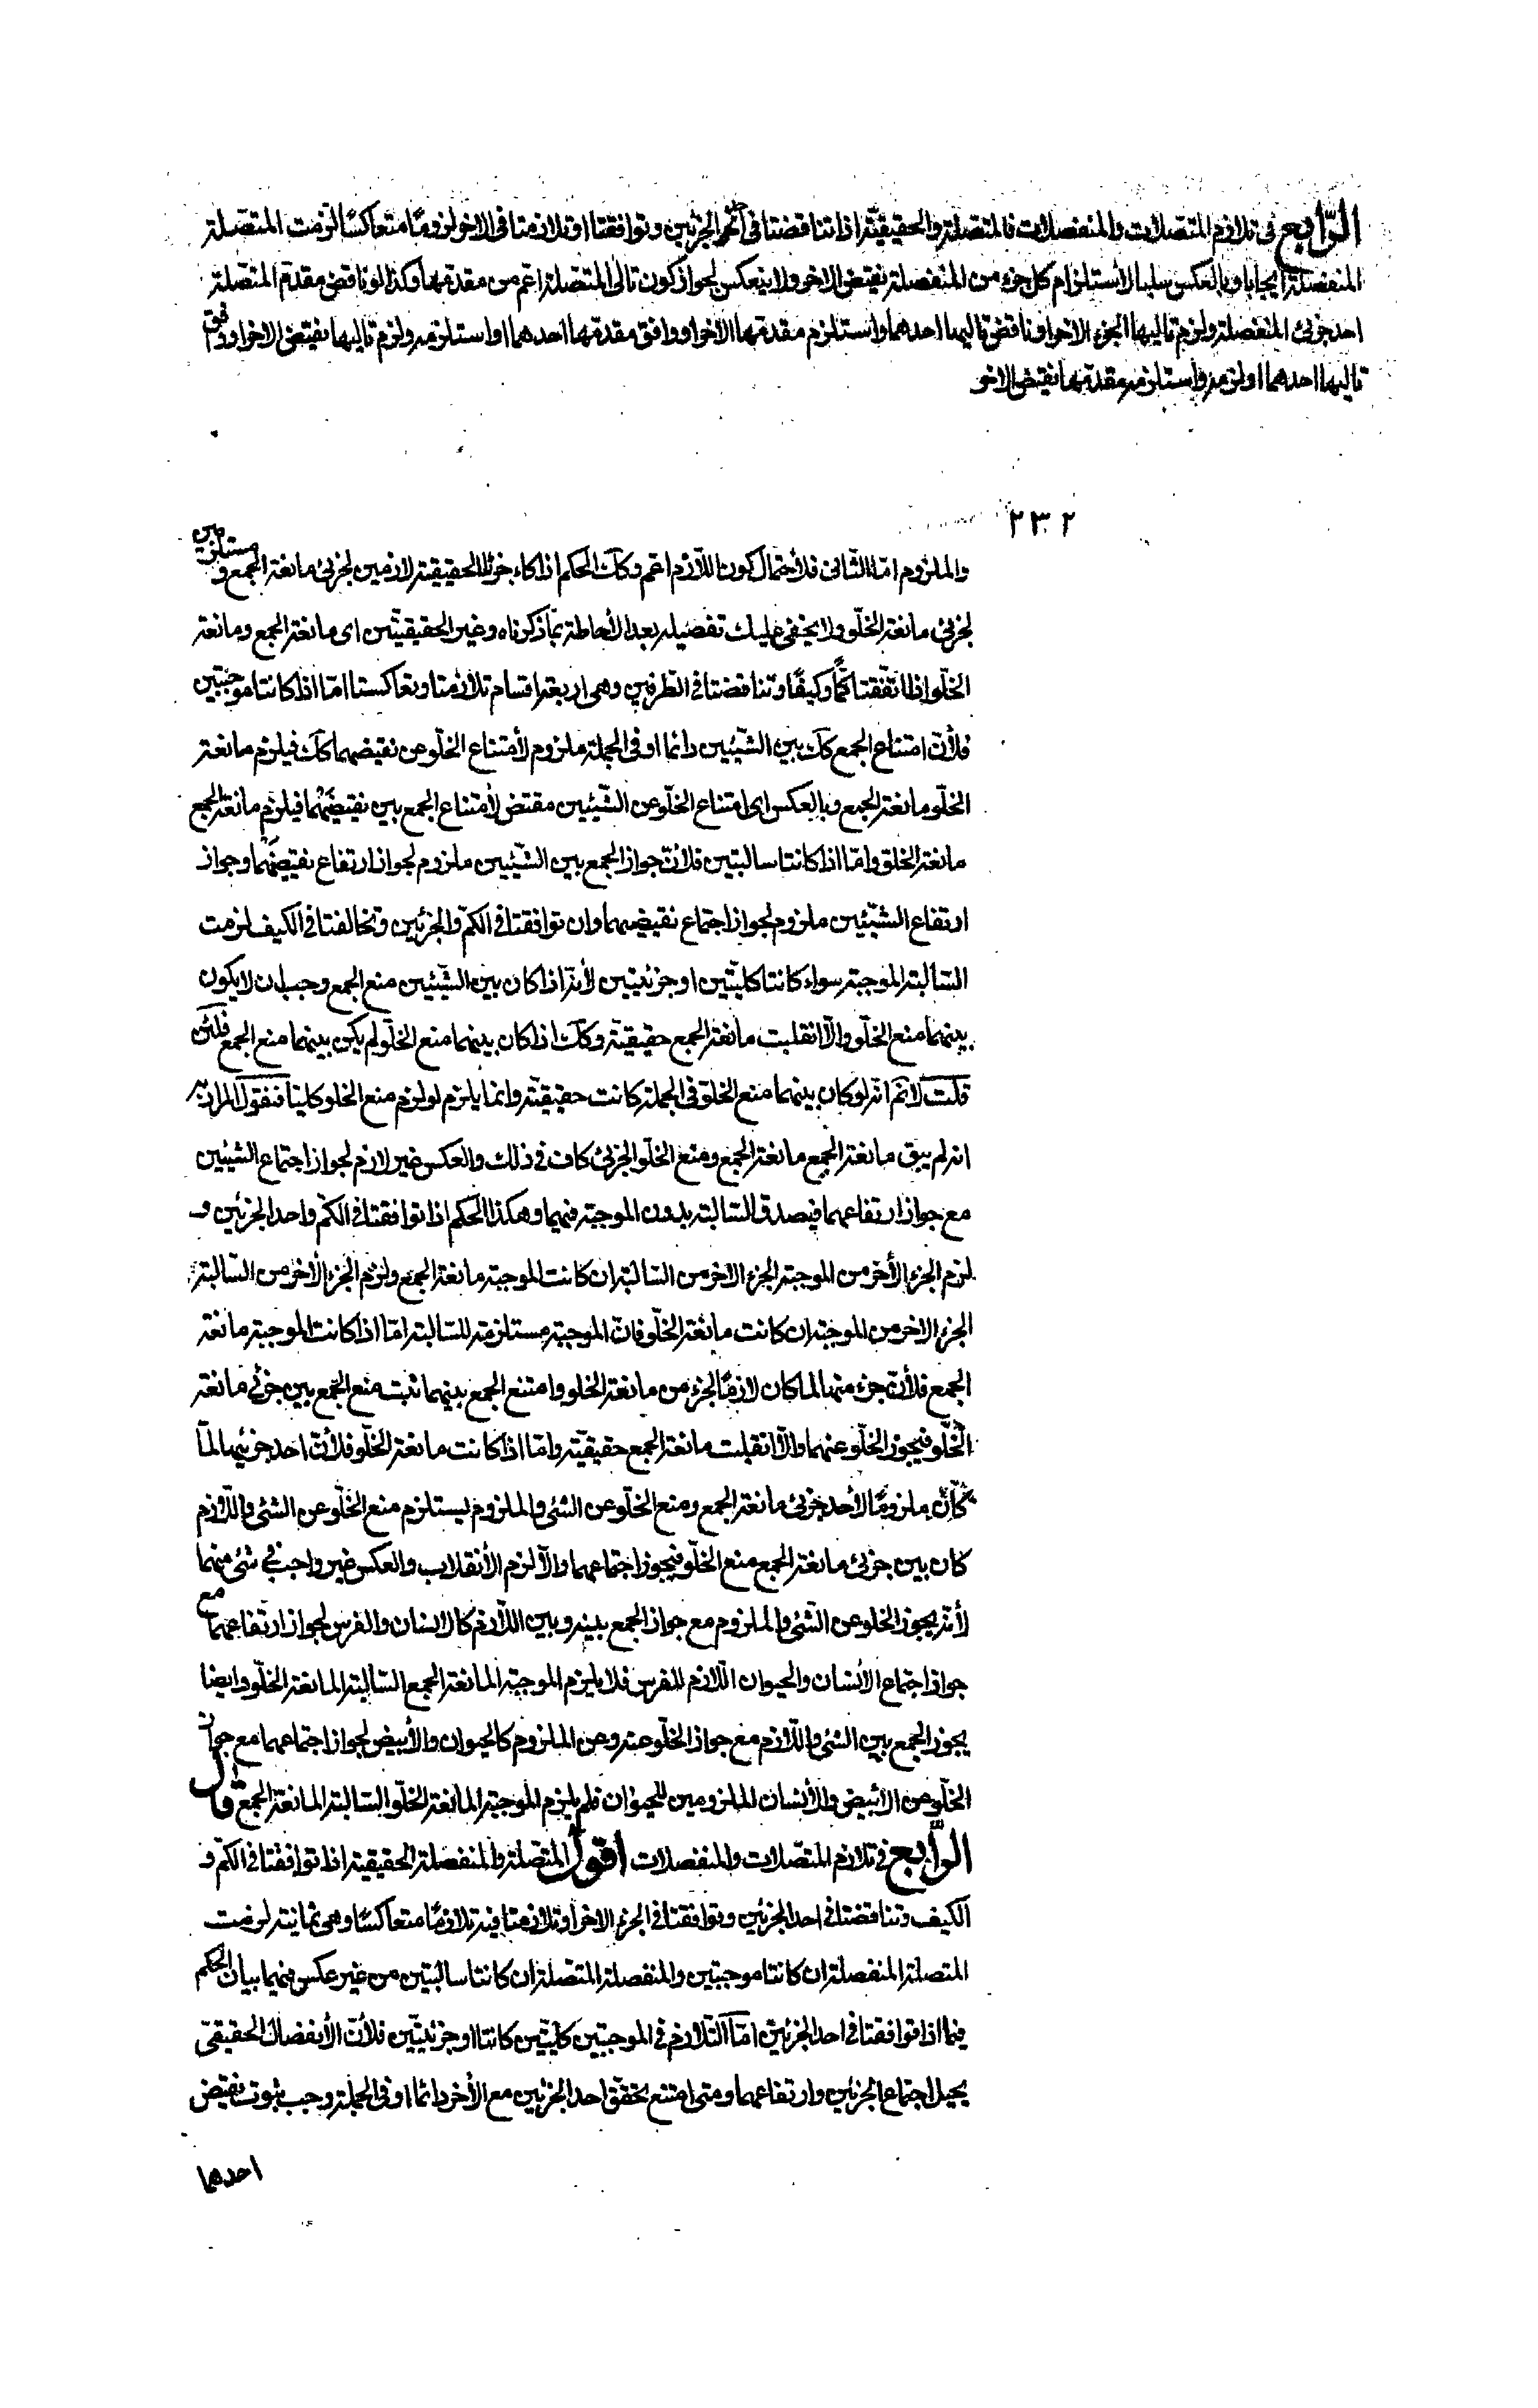 الرّابع فى تلازم المتّصلات والمنفصلات فالمتّصلة والحقيقيّة اذا تناقضتا فى احد الجزئين وتوافقتا او تلازمتا فى الاخر لزومًا متعاكسًا لزمت المتّصلة
المنفصلة ايجابا وبالعكس سلبا لاستلزام كل جزء من المنفصلة نقيض الاخر ولا ينعكس لجواز كون تالى المتّصلة اعم من مقدمها وكذا لو ناقض مقدم المتّصلة
احد جزئى المنفصلة ولزم تاليها الجزء الاخر او ناقض تاليها احدهما واستلزم مقدمها الاخر او وافق مقدمها احدهما او استلزمه ولزم تاليها نقيض الاخر او وافق
تاليها احدهما او لزمه واستلزمه مقدمها نقيض الاخر
٢٣٢
والملزوم امّا الثانى فلأحتمال كون اللازم اعم وكك الحكم اذا كان جزئا الحقيقية لازمين لجزئى مانعة الجمع و مستلزمين
لجزئى مانعة الخلّو ولا يخفى عليك تفصيله بعد الأحاطة بما ذكرناه وغير الحقيقيّتين اى مانعة الجمع ومانعة
الخلّو اذا اتّفقتا كمًّا وكيفًا وتناقضتا فى الطرفين وهى اربعة اقسام تلازمتا وتعاكستا امّا اذا كانتا موجبتين
فلأنّ امتناع الجمع كك بين الشيئين دائما او فى الجملة ملزوم لأمتناع الخلّو عن نقيضهما كك فيلزم مانعة
الخلّو مانعة الجمع وبالعكس اى امتناع الخلّو عن الشيئين مقتض لأمتناع الجمع بين نقيضهما فيلزم مانعة الجمع
مانعة الخلّو وامّا اذا كانتا سالبتين فلأنّ جواز الجمع بين الشيئين ملزوم لجواز ارتفاع نقيضهما وجواز
ارتفاع الشيئين ملزوم لجواز اجتماع نقيضهما وان توافقتا فى الكمّ والجزئين وتخالفتا فى الكيف لزمت
السّالبة الموجبة سواء كانتا كليّتين او جزئيتين لأنّه اذا كان بين الشيئين منع الجمع وجب ان لا يكون
بينهما منع الخلّو والّا انقلبت مانعة الجمع حقيقيّة وكك اذا كان بينهما منع الخلّو لم يكن بينهما منع الجمع فلئن
قلت لا نم انّه لو كان بينهما منع الخلّو فى الجملة كانت حقيقيّة وانما يلزم لو لزم منع الخلو كليّا فنقول المراد
انه لم يبق مانعة الجمع مانعة الجمع ومنع الخلّو الجزئى كاف فى ذلك والعكس غير لازم لجواز اجتماع الشيئين
مع جواز ارتفاعهما فيصدق السّالبة بدون الموجبة فيهما وهكذا الحكم اذا توافقتا فى الكمّ واحد الجزئين و
لزم الجزء الأخر من الموجبة الجزء الاخر من السّالبة ان كانت الموجبة مانعة الجمع ولزم الجزء الأخر من السّالبة
الجزء الاخر من الموجبة ان كانت مانعة الخلّو فانّ الموجبة مستلزمة للسّالبة امّا اذا كانت الموجبة مانعة
الجمع فلأنّ جزء منها لما كان لازمًا لجزء من مانعة الخلو وامتنع الجمع بينهما ثبت منع الجمع بين جزئى مانعة
الخلّو فيجوز الخلّو عنهما والّا انقلبت مانعة الجمع حقيقيّة وامّا اذا كانت مانعة الخلّو فلأنّ احد جزئيها لمّا
كان ملزومًا لأحد جزئى مانعة الجمع ومنع الخلّو عن الشئ والملزوم يستلزم منع الخلّو عن الشئ واللازم
كان بين جزئى مانعة الجمع منع الخلّو فيجوز اجتماعهما والّا لزم الأنقلاب والعكس غير واجب فى شئ منهما
لأنّه يجوز الخلو عن الشئ والملزوم مع جواز الجمع بينه وبين اللازم كالانسان والفرس لجواز ارتفاعهما مع
جواز اجتماع الأنسان والحيوان اللازم للفرس فلا يلزم الموجبة المانعة الجمع السّالبة المانعة الخلّو وايضا
يجوز الجمع بين الشئ واللازم مع جواز الخلّو عنه وعن الملزوم كالحيوان والأبيض لجواز اجتماعهما مع جواز
الخلّو عن الابيض والأنسان الملزومين للحيوان فلم يلزم الموجبة المانعة الخلّو السّالبة المانعة الجمع قال
الرّابع فى تلازم المتصّلات والمنفصلات اقول المتصّلة والمنفصلة الحقيقية اذا توافقتا فى الكمّ و
الكيف وتناقضتا فى احد الجزئين وتوافقتا فى الجزء الاخر او تلازمتا فيه تلازمًا متعاكسًا وهى ثمانية لزمت
المتصلة المنفصلة ان كانتا موجبتين والمنفصلة المتصّلة ان كانتا سالبتين من غير عكس فيهما بيان الحكم
فيما اذا توافقتا فى احد الجزئين امّا التّلازم فى الموجبتين كليّتين كانتا او جزئيتّين فلأنّ الأنفصال الحقيقىّ
يحيل اجتماع الجزئين وارتفاعهما ومتى امتنع تحقّق احد الجزئين مع الأخر دائما او فى الجملة وجب ثبوت نقيض
احدهما